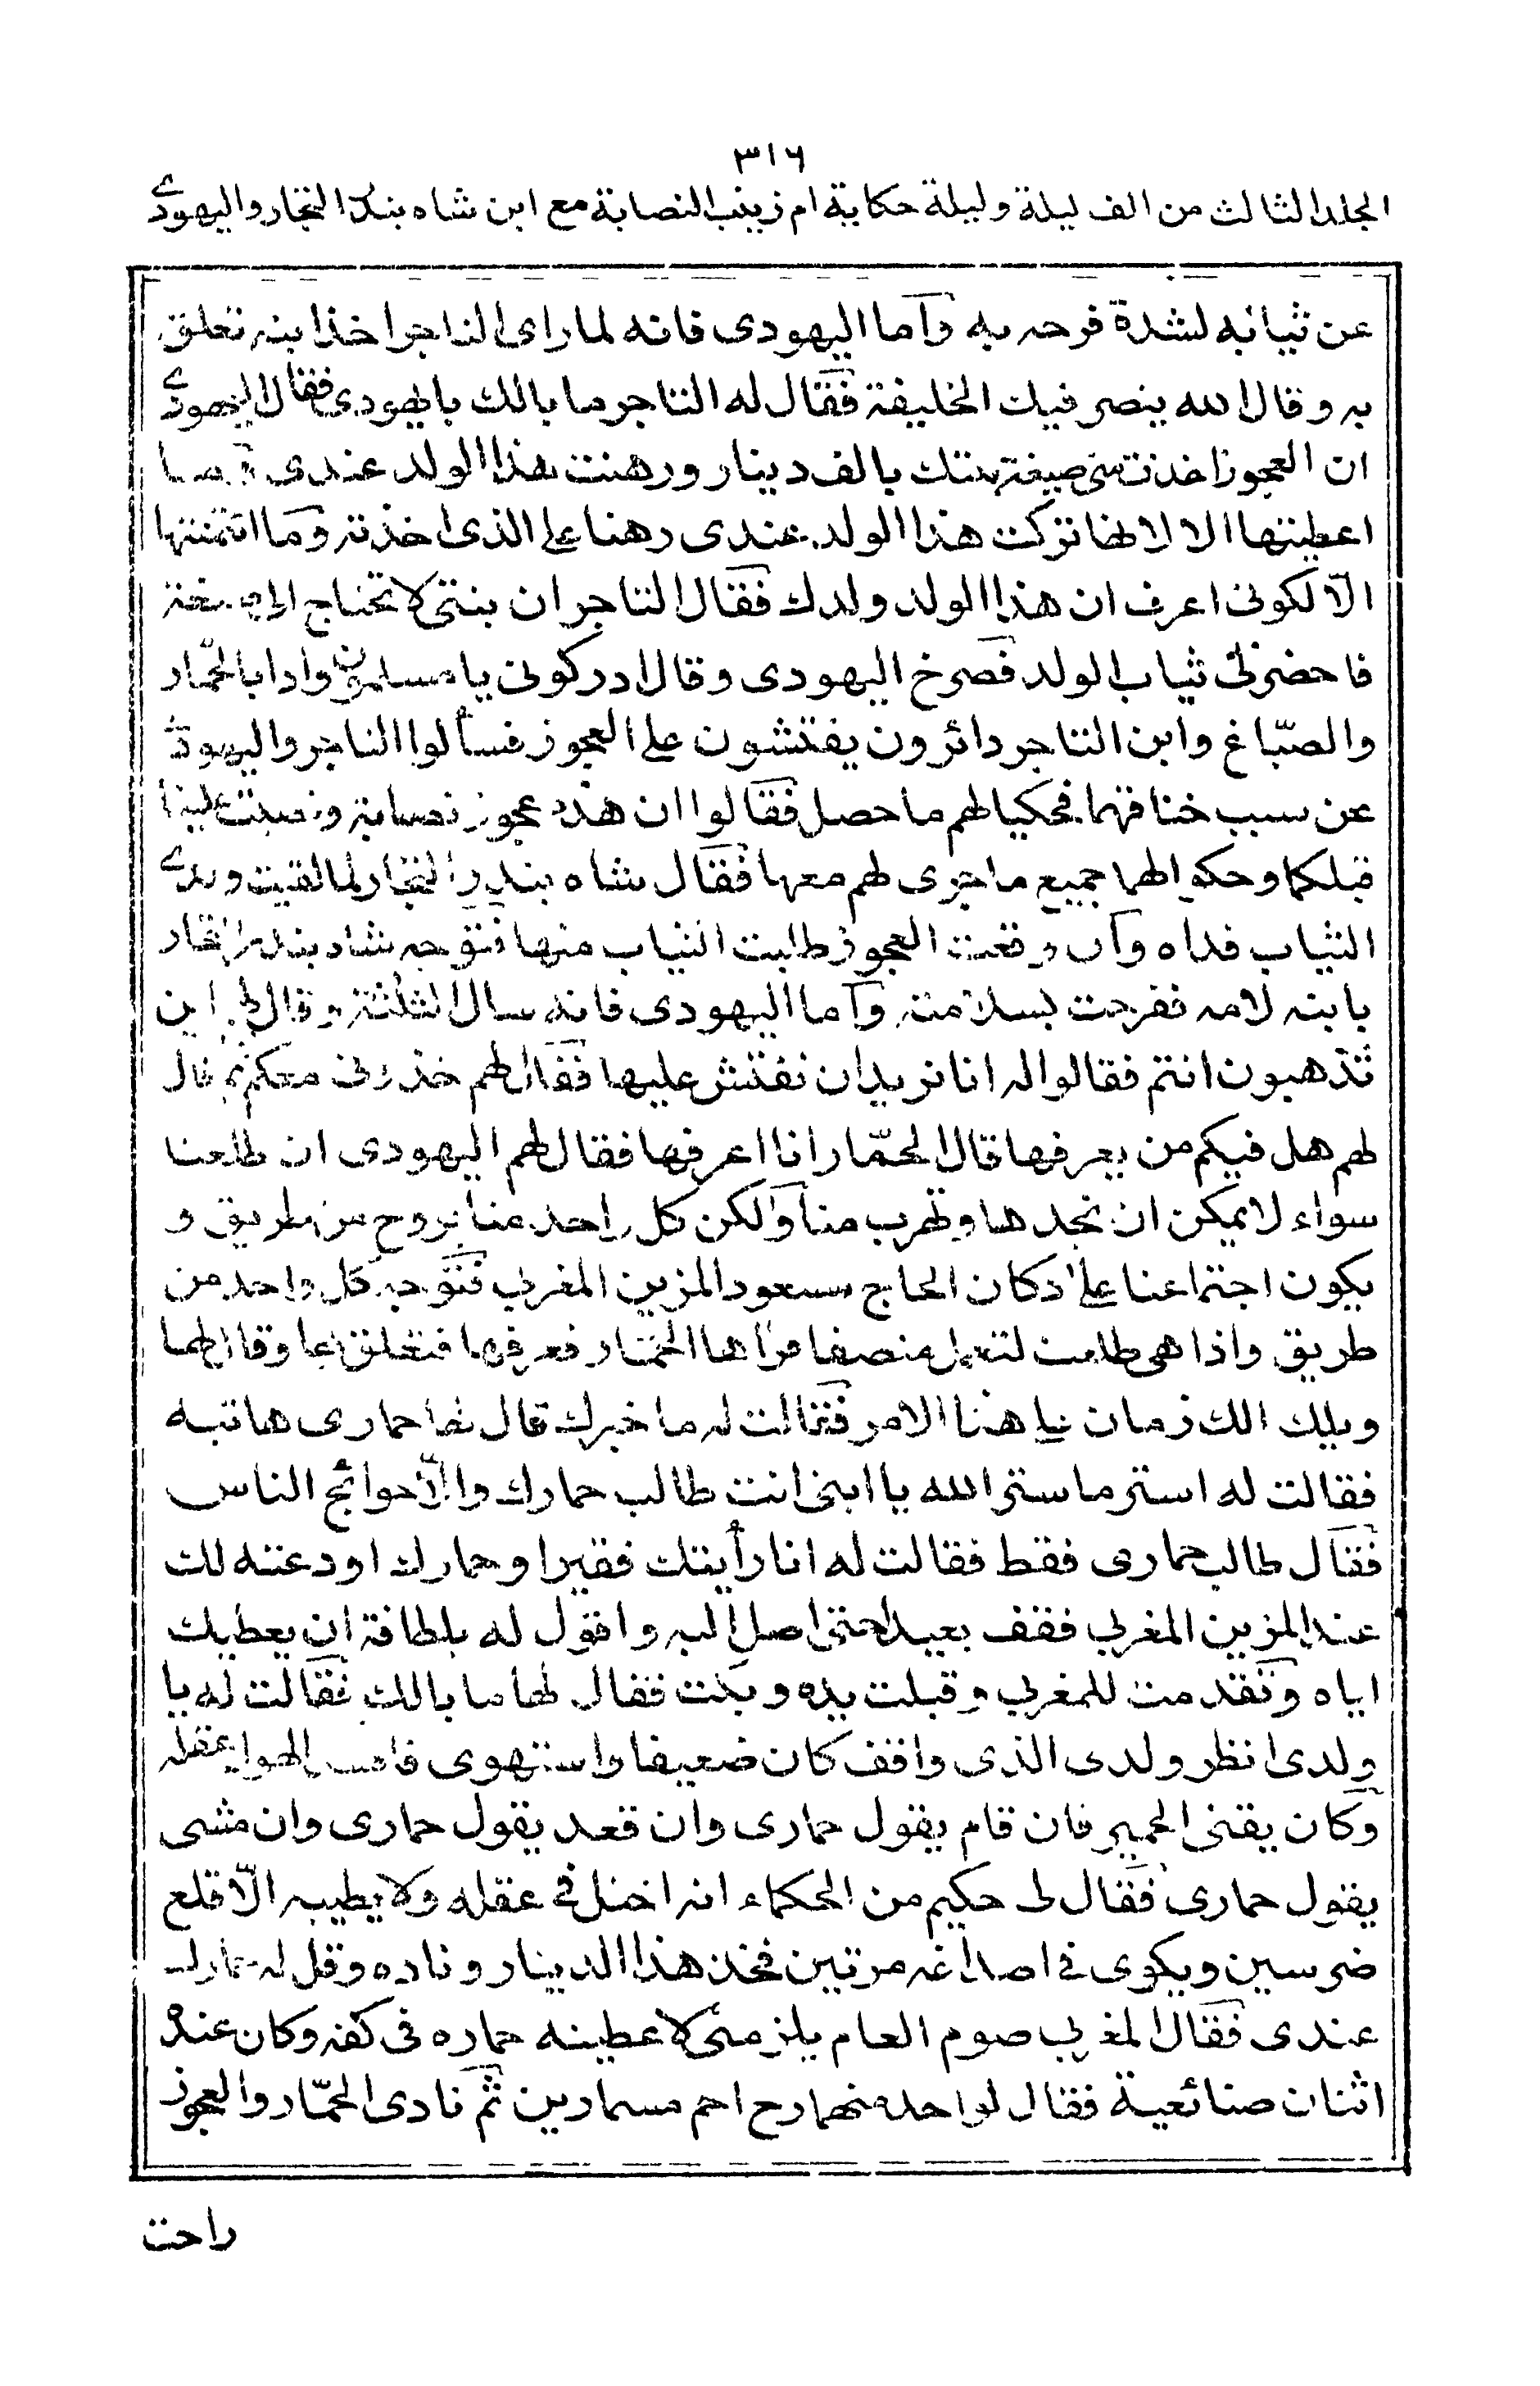 ٣١٦
المجلد الثالث من الف ليلة وليلة حكاية ام زينب النصابة مع ابن شاه بندر التجار واليهودى
عن ثيابه لشدة فرحه به وآما اليهودى فانه لما راى التاجر اخذ ابنه تعلق
به وقال الله ينصر فيك الخليفة فقال له التاجر ما بالك يا يهودى فقال اليهودى
ان العجوز اخذت منى صيغة بنتك بالف دينار ورهنت هذا الولد عندى وما
اعطيتها الا لانها تركت هذا الولد عندى رهنا على الذى اخذته وما ائتمنتها
الّا لكونى اعرف ان هذا الولد ولدك فقال التاجر ان بنتى لا تحتاج الى صيغة
فاحضر لى ثياب الولد فصرخ اليهودى وقال ادركونى يا مسلمين واذا بالحمّار
والصبّاغ وابن التاجر دائرون يفتشون على العجوز فسألوا التاجر واليهودى
عن سبب خناقهما فحكيا لهم ما حصل فقالوا ان هذه عجوز نصابة ونصبت علينا
قبلكما وحكوا لهما جميع ما جرى لهم معها فقال شاه بندر التجار لما لقيت ولدى
الثياب فداه وان وقعت العجوز طلبت الثياب منها فتوجه شاه بندر التجار
بابنه لامه ففرحت بسلامته وآما اليهودى فانه سال الثلثة وقال لهم اين
تذهبون انتم فقالوا له انا نريد ان نفتش عليها فقال لهم خذونى معكم ثم قال
لهم هل فيكم من يعرفها قال الحمّار انا اعرفها فقال لهم اليهودى ان طلعنا
سواء لا يمكن ان نجدها وتهرب منا ولكن كل واحد منا يروح من طريق و
يكون اجتماعنا على دكان الحاج مسعود المزين المغربى فتوجه كل واحد من
طريق واذا هى طلعت لتعمل منصفا فرآها الحمّار فعرفها فتعلق بها وقال لها
ويلك الك زمان على هذا الامر فقالت له ما خبرك قال لها حمارى هاتيه
فقالت له استر ما ستر الله يا ابنى انت طالب حمارك والّا حوائج الناس
فقال طالب حمارى فقط فقالت له انا رأيتك فقيرا وحمارك اودعته لك
عند المزين المغربى فقف بعيدا حتى اصل اليه واقول له بلطافة ان يعطيك
اياه وتقدمت للمغربى وقبلت يده وبكت فقال لها ما بالك فقالت له يا
ولدى انظر ولدى الذى واقف كان ضعيفا واستهوى فافسد الهوا عقله
وكان يقنى الحمير فان قام يقول حمارى وان قعد يقول حمارى وان مشى
يقول حمارى فقال لى حكيم من الحكماء انه اختل فى عقله ولا يطيبه الّا قلع
ضرسين ويكوى فى اصداغه مرتين فخذ هذا الدينار وناده وقل له حمارك
عندى فقال المغربى صوم العام يلزمنى لاعطينه حماره فى كفه وكان عنده
اثنان صنائعية فقال لواحد منهما رح احم مسمارين ثم نادى الحمّار والعجوز
راحت